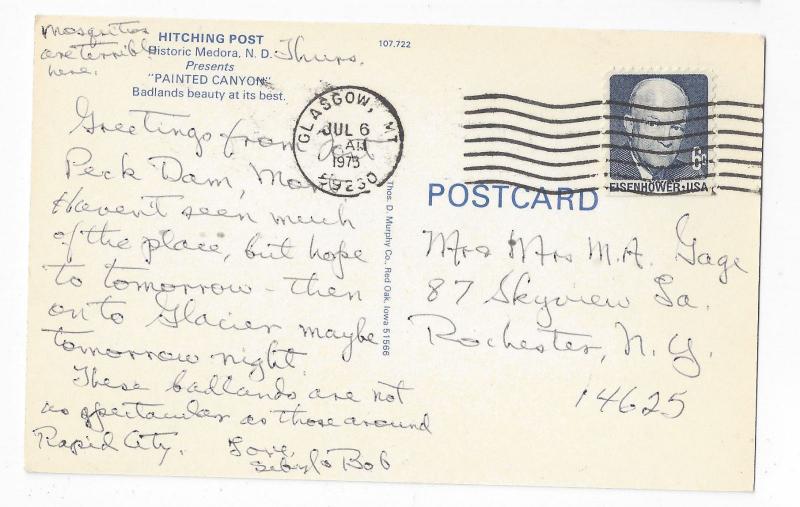 Mosquitos
are terrible
here.
HITCHING POST
Historic Medora, N. D.
Presents
"PAINTED CANYON"
Badlands beauty at its best.
107.722
Thurs.
Greetings from Fort
Peck Dam, Mon
Haven't seen much
of the place, but hope
to tomorrow - then
onto Glacier maybe
tomorrow night.
These badlands are not
as spectacular as those around
Rapid City.
Love,
Bob
GLASGOW, MT
JUL 6
AM
1973
59230
Thos. D. Murphy Co., Red Oak, Iowa 51566
6¢
EISENHOWER·USA
POSTCARD
Mrs M.A. Gage
87 Skyview La.
Rochester, N.Y.
14625